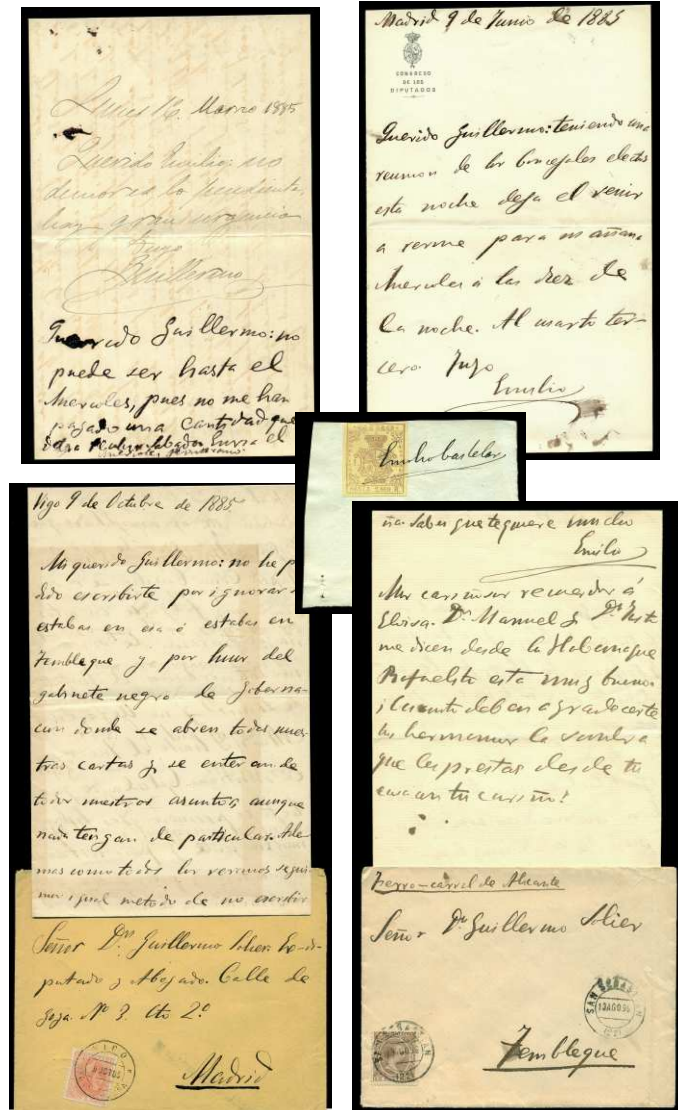 Lunes 16 Marzo 1885
Querido Emilio: no
demores lo pendiente,
hay gran urgencia
Tuyo
Guillermo
Querido Guillermo: no
puede ser hasta el
Miercoles, pues no me han
pagado una cantidad que
el
Madrid 9 de Junio de 1885
CONGRESO
DE LOS
DIPUTADOS
Querido Guillermo: teniendo una
reunion de los concejales electos
esta noche deja el venir
a verme para mañana
Miercoles á las diez de
la noche. Al cuarto ter-
cero. Tuyo
Emilio
Emilio Castelar
Vigo 9 de Octubre de 1885
Mi querido Guillermo: no he po
dido escribirte por ignorar si
estabas en esa ó estabas en
Tembleque y por huir del
gabinete negro de Goberna-
cion donde se abren todas nues-
tras cartas y se enteran de
todos nuestros asuntos aunque
nada tengan de particular. Ade
mas como todos los veranos segui-
mos igual metodo de no escribir
Señor Dn Guillermo Solier. Ex-di-
putado y Abogado. Calle de
Goya. Nº 3. Cto 2º
Madrid
ña. Sabes que te quiere mucho
Emilio
Mis cariñosos recuerdos á
Elvira. Dn Manuel y Dn
me dicen desde la Habana que
Rafaelito esta muy bueno.
¡Cuanto deben agradecerte
tus hermanos la sombra
que les prestas desde tu
casa con tu cariño!
Ferro-carril de Alicante
Señor Dn Guillermo Solier
SAN SEBASTIAN
Tembleque
SAN SEBASTIAN